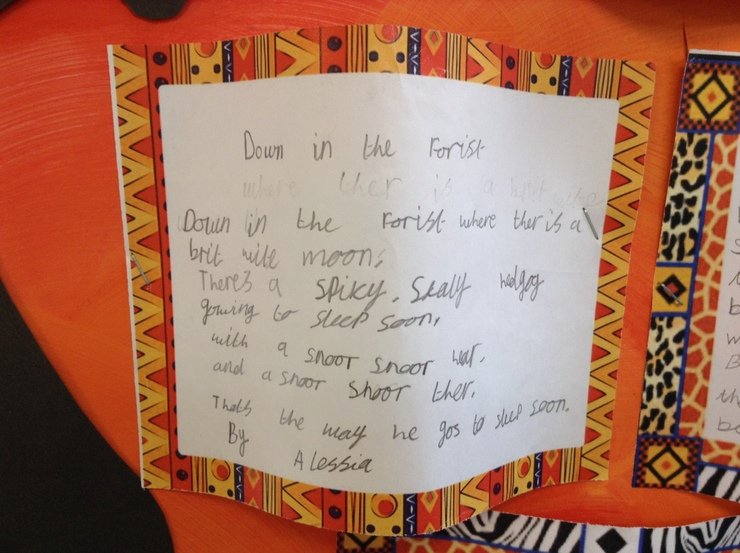 Down in the Forist
where ther is a
Down in the Forist where ther is a
brit wite moon,
There's a SPiKy, Skaly hedgog
gowing to Sleep soon,
with a snoor snoor hear.
and a snoor snoor ther.
Thats the way he gos to sleep soon.
By
Alessia